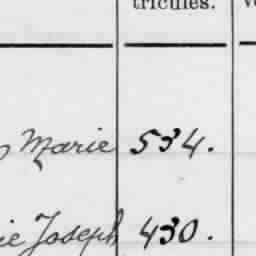 tricules.
Marie 534.
Joseph 430.